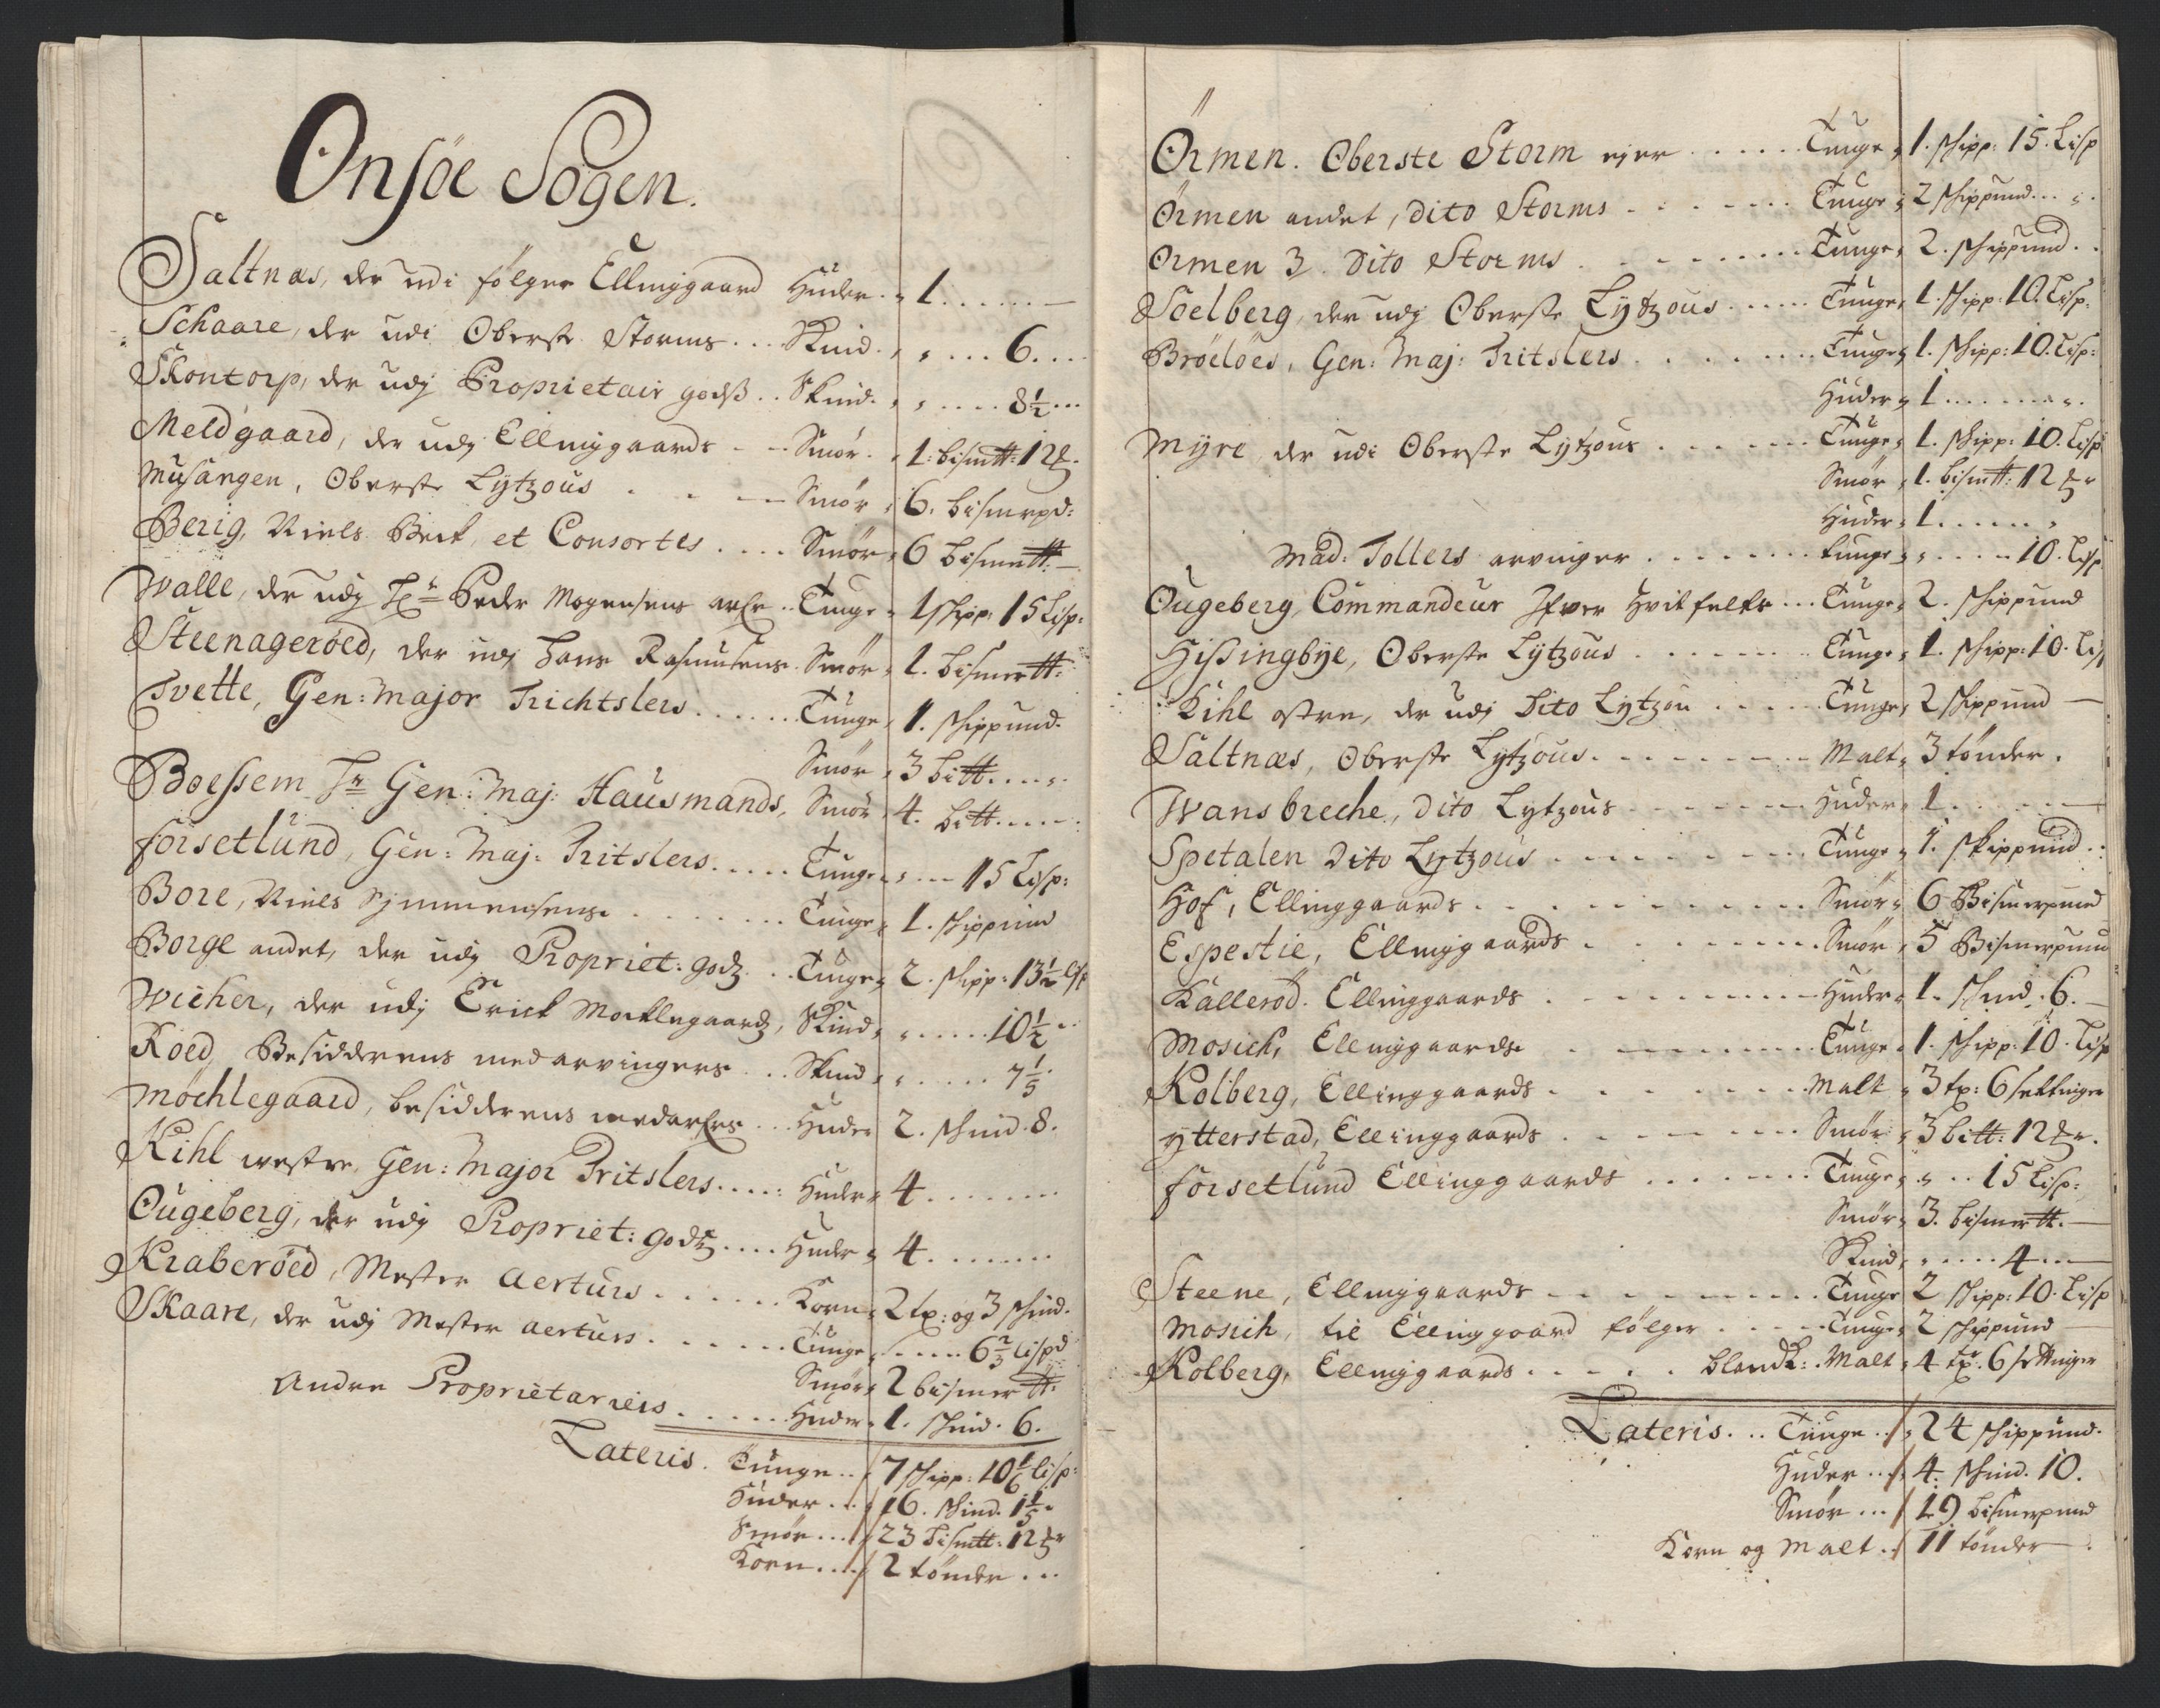 Onsöe Sogen.
Saltnæs, der udi følger Ellinggaard Huder. 1......
Schaare, der udi Oberste Storms... Skind. .... 6....
Skontorp, der udj Proprietair godß.. Skind. .... 8½...
Meldgaard, der udj Ellinggaards - - Smør. 1: bismt℔: 12 ℔.
Musangen, Oberste Lytzous . . - Smør 6. bismrpd:
Berig, Niels Beck, et Consortes .... Smør 6 bismr℔.
Walle, der udj Sr Peder Mogensens arfr .. Tunge 1 schipp: 15 Lisp:
Steenageröed, der udj Hans Rasmusens. Smør 1. bismer℔:
Tvette, Gen: Major Trichtslers...... Tunge 1. schippund.
Smør 3 bi℔.....
Boessem Hr Gen: Maj: Hausmands, Smør 4. bi℔.....
forsetlund, Gen: Maj: Tritslers..... Tunge ... 15 Lisp:
Bore, Niels Symmensens ....... Tunge 1. schippund
Borge andet, der udj Propriet: godz... Tunge 2. schipp: 13½ lisp
Wicher, der udj Erick Mocklegaardz, Skind ...... 10½..
Röed, Besidderens medarvingers... Skind ..... 7⅕.
Möchlegaard, besidderens medarfres... Huder 2. schind. 8.
Kihl westre, Gen: Major Tritslers..... Huder 4........
Ougeberg, der udj Propriet: godz.... Huder 4........
Kraberöed, Mester Aerturs...... Korn 2 tr: og 3 schind.
Skaare, der udj Mester Aerturs...... Tunge ..... 6⅔ lispd
Smør 2 bismer℔:
Andre Proprietarieis..... Huder 1. schind. 6.
Lateris. Tunge.. 7 schipp: 10⅙ lisp:
Huder... 16. schind. 1⅕.
Smør... 23 bism℔: 12 ℔r
Korn.... 2 tönder...
Örmen. Oberste Storm ejer ...... Tunge 1. schipp: 15. Lisp
Örmen andet, Dito Storms ...... Tunge 2 schippund...
Ormen 3. Dito Storms ....... Tunge 2. schippund..
Soelberg, der udj Oberste Lytzous..... Tunge 1. schipp: 10. Lisp.
Bröelöes, Gen: Maj: Tritslers....... Tunge 1. schipp: 10. Lisp:
Huder 1.........
Myre, der udi Oberste Lytzous...... Tunge 1. schipp: 10. Lisp
Smør 1. bism℔: 12 ℔r
Huder 1.......
Mad: Tollers arvinger ....... tunge .... 10. Lisp
Ougeberg, Commandeur Ifver Hvitfelts... Tunge 2. schippund
Hißingbye, Oberste Lytzous ...... Tunge 1. schipp: 10. Lis
Kihl østre, der udj Dito Lytzou ..... Tunge 2 schippund —
Saltnæs, Oberste Lytzous........ Malt 3 tönder.
Wansbreche, Dito Lytzous ...... Huder 1......
Spetalen Dito Lytzous ........ Tunge 1. skippund..
Hof, Ellinggaards........... Smør 6 Bismerpund
Espestie, Ellinggaards........ Smør 5 Bismerpund
Kalleröd. Ellinggaards........ Huder 1. schind. 6. —
Mosich, Ellinggaards........ Tunge 1. schipp: 10. Lisp
Kolberg, Ellinggaards....... Malt 3 tr: 6 settinger
ytterstad, Ellinggaards....... Smør 3 bi℔: 12 ℔r.
forsetlund Ellinggaards ...... Tunge ... 15 Lisp:
Smør 3. bismer℔. —
Skind ..... 4...
Steene, Ellinggaards........ Tunge 2 schipp: 10. Lisp
Mosich, til Ellinggaard følger ..... Tunge 2 schippund —
Kolberg, Ellinggaards..... blandk: Malt 4 tr. 6 settinger
Lateris... Tunge... 24 schippund.
Huder... 4. schind. 10.
Smør... 19 bismerpund
Korn og Malt.. 11 tönder.